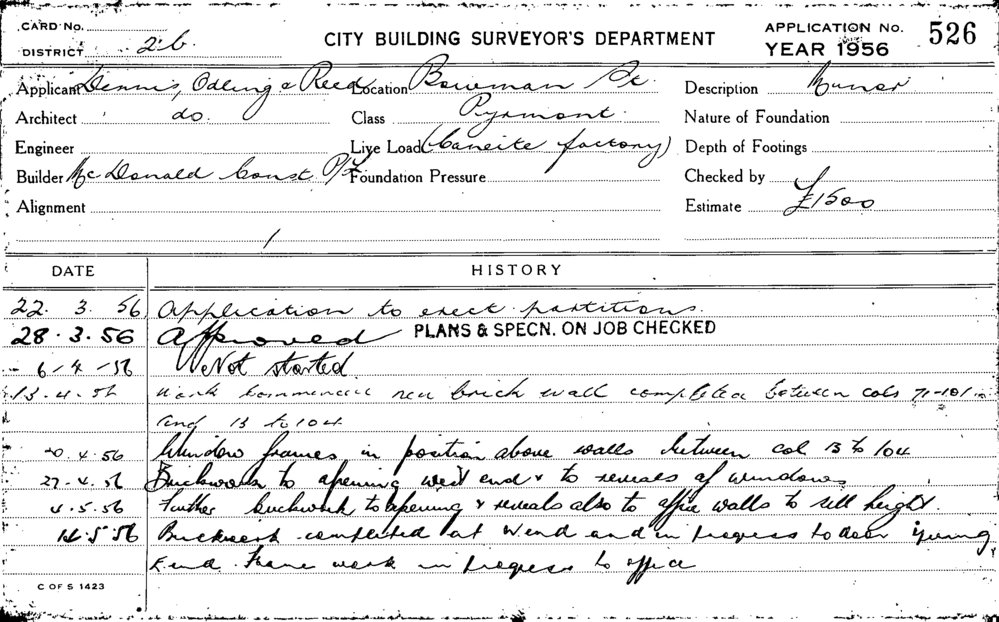 CARD No.
DISTRICT 2b
CITY BUILDING SURVEYOR'S DEPARTMENT
APPLICATION No. 526
YEAR 1956
Applicant Dennis, Odling & Reed Location Bowman St Description Minor
Architect do. Class Pyrmont. Nature of Foundation
Engineer Live Load (Caneite factory) Depth of Footings
Builder Mc Donald Const P/L Foundation Pressure Checked by
Alignment Estimate £1500
DATE HISTORY
22. 3. 56 Application to erect partitions.
28. 3. 56 Approved PLANS & SPECN. ON JOB CHECKED
6-4-56 Not started
13.4.56 Work commenced new brick wall completed between cols
and 13 to 104
4.56 Window frames in position above walls between col 13 to 104
27.4.56 Brickwork to opening west end & to reveals of windows
4.5.56 Further brickwork to opening & reveals also to office walls to sill height.
14.5.56 Brickwork completed at W end and in progress to door
E end. Frame work in progress to office
C OF S 1423